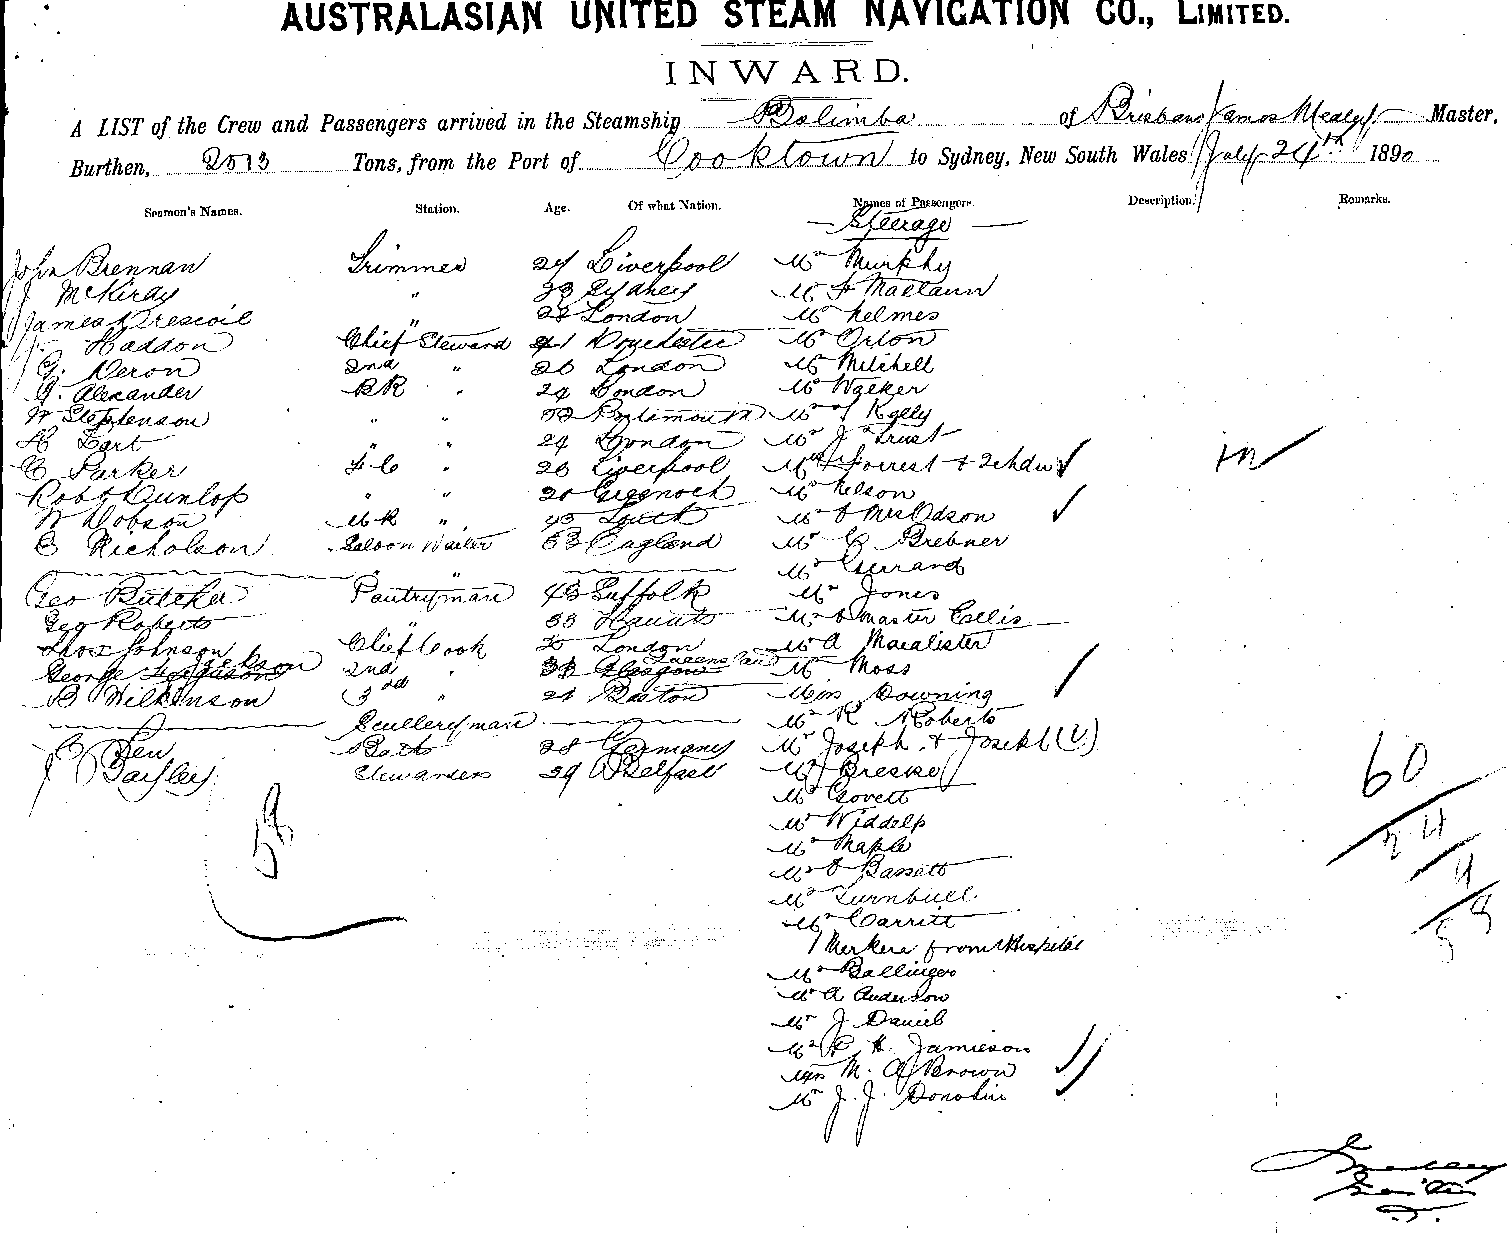 AUSTRALASIAN UNITED STEAM NAVIGATION CO., LIMITED.
INWARD.
A LIST of the Crew and Passengers arrived in the Steamship Bolimba of Brisbane James Mealey Master,
Burthen, 2513 Tons, from the Port of Cooktown to Sydney, New South Wales July 24th 1890
Seamen's Names. Station. Age. Of what Nation. Names of Passengers. Description. Remarks.
Steerage
John Brennan Trimmer 27 Liverpool Mr Murphy
J McKirdy " 23 Sydney Mr
James " 22 London Mr Helmes
Haddon Chief Steward 41 Dorchester Mr Orton
G. 2nd " 26 London Mr Mitchell
A. Alexander BR " 24 London Mr Walker
W Stephenson " " Portsmouth Mr J Kelly
H Hart " " 24 London Mr J Trust
C Parker F C " 26 Liverpool Forrest + 2 chdn in
Robt Dunlop " " 20 Greenock Mr Nelson
W Dobson " 45 Mr & Mrs Odson
C Nicholson Saloon Waiter 33 England Mr C Brebner
" " Mr Gerrard
Geo Butcher Pantryman 43 Suffolk Mr Jones
Geo Roberts " 33 Haunts Mr & Master Ellis
Thos Johnson Chief Cook London Mr A Macalister
George Ferguson Jackson 2nd " Glasgow Mr Moss
B Wilkinson 3rd " 21 Boston Downing
Scullery man Mr R Roberts
28 Germany Mr Joseph + Joseph
Bayley Stewardess 29 Belfast Mr
Mr Govett
60
Mr Widdelp
24
Mr Maple
58
Mr & Bassett
4
Mr Turnbull
58
Mr Garritt
1 from Hospital
Mr Ballinger
Mr A Anderson
Mr J. Daniel
Mr R H. Jamieson
Mrs M. A Brown
Mr J. J. Donohue